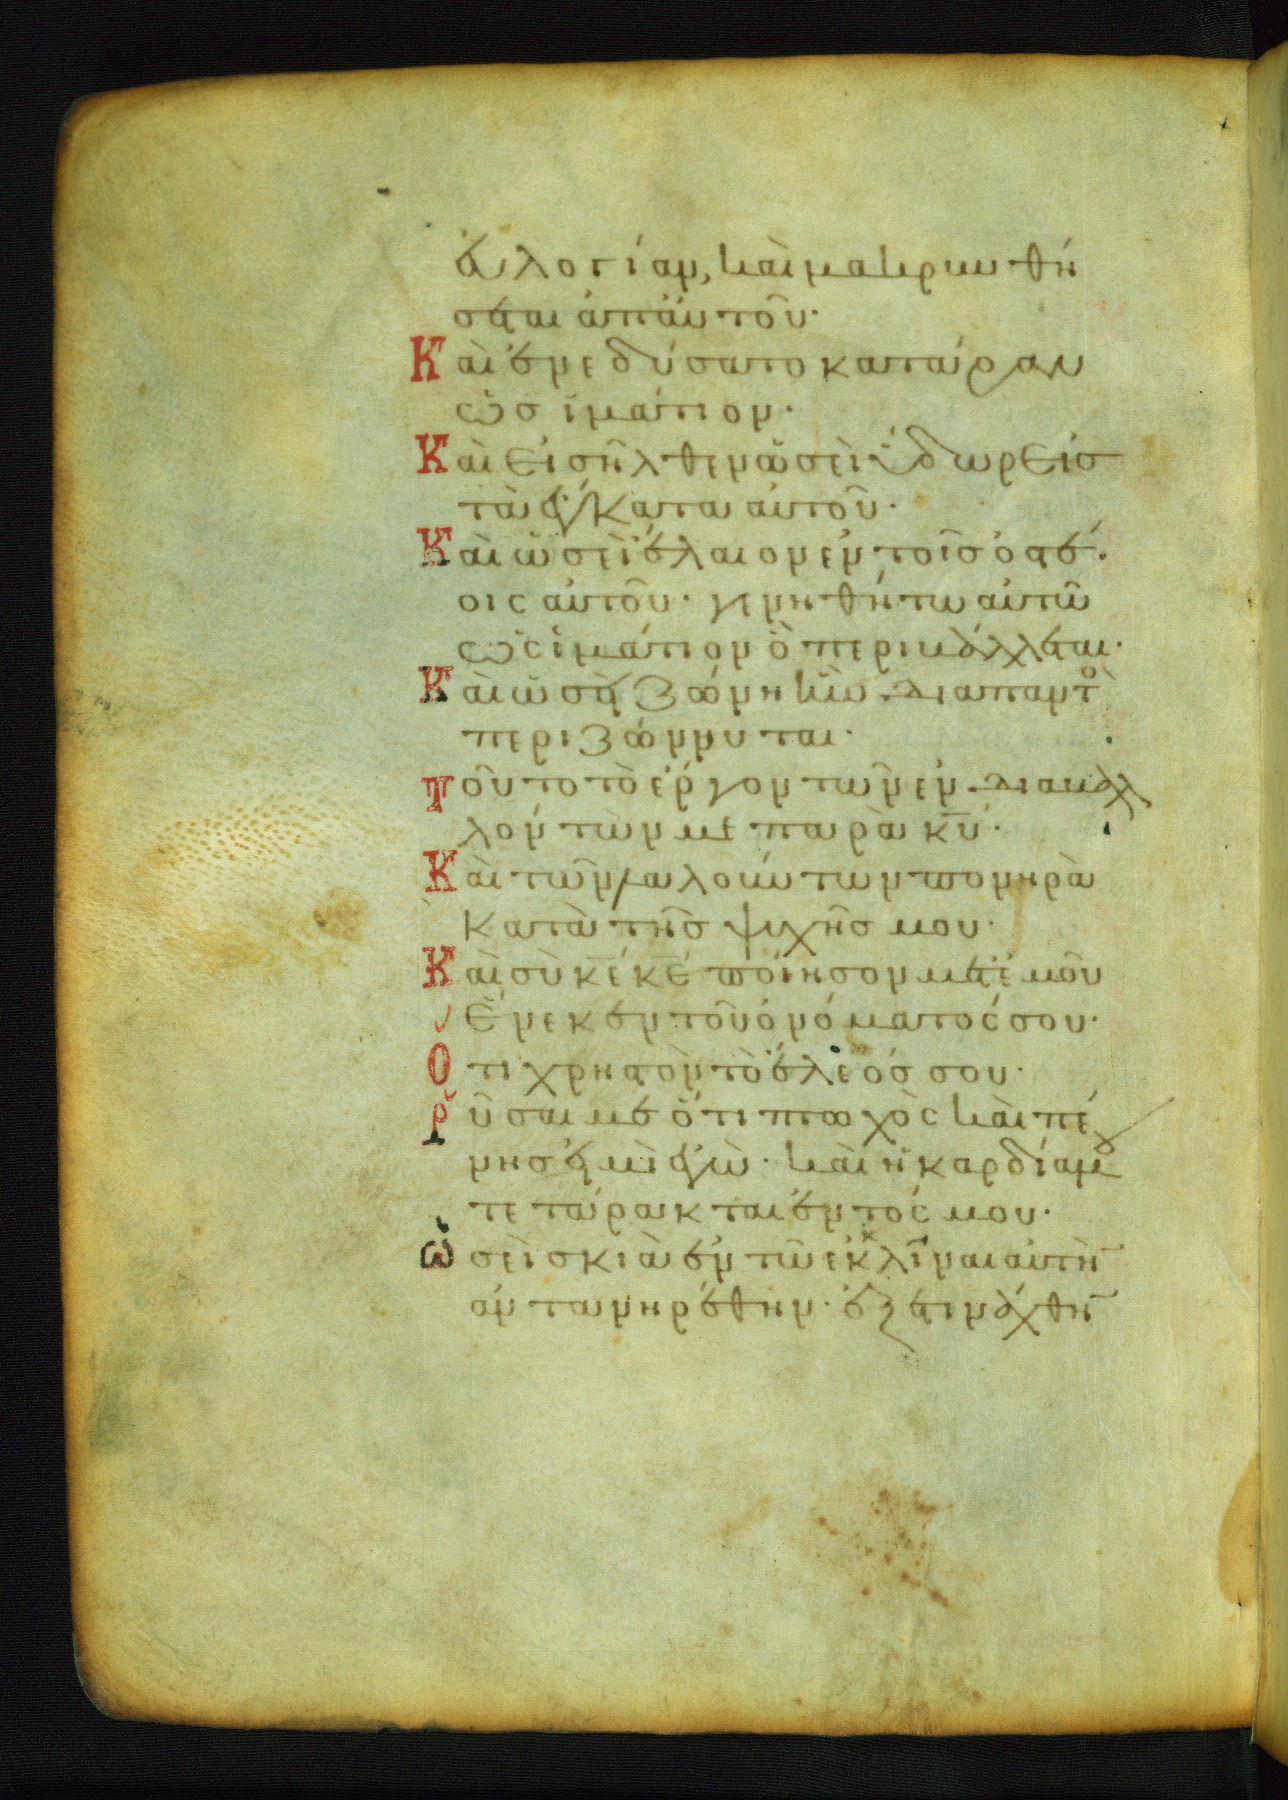 εὐλογίαν, καὶ μακρυνθή
σεται ἀπ αὐτοῦ·
Καὶ ἐνεδύσατο κατάραν
ὡσ ἱμάτιον·
Καὶ εἰσῆλθεν ὡσεὶ ὕδωρ εἰσ
τὰ ἔγκατα αὐτοῦ·
Καὶ ὡσεὶ ἔλαιον ἐν τοῖσ ὀστέ
οις αὐτοῦ· γενηθήτω αὐτῶ
ὡς ἱμάτιον ὃ περιβάλλεται·
Καὶ ὡσεὶ ζώνη ἣν διαπαντὸ
περιζώννυται·
Τοῦτο τὸ ἔργον τῶν ἐνδιαβαλ
λόντων με παρὰ κυ̅·
Καὶ τῶν λαλούντων πονηρὰ
κατὰ τῆσ ψυχῆσ μου·
Καὶ σὺ κε̅ κε̅ ποίησον μετ ἐμοῦ
Ἕνεκεν τοῦ ὀνόματος σου·
Ὅτι χρηστὸν τὸ ἔλεός σου·
Ῥῦσαι με ὅτι πτωχὸς καὶ πέ
νησ εἰμὶ ἐγὼ· καὶ ἡ καρδία μου
τετάρακται ἐντός μου·
Ὡσεὶ σκιὰ ἐν τῶ ἐκκλῖναι αὐτὴ
ἀντανηρέθην· ἐξετινάχθη